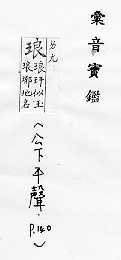 彙音寶鑑
另尤
琅 琅玕似玉
琅鄉地名
(公下平聲
P.140)